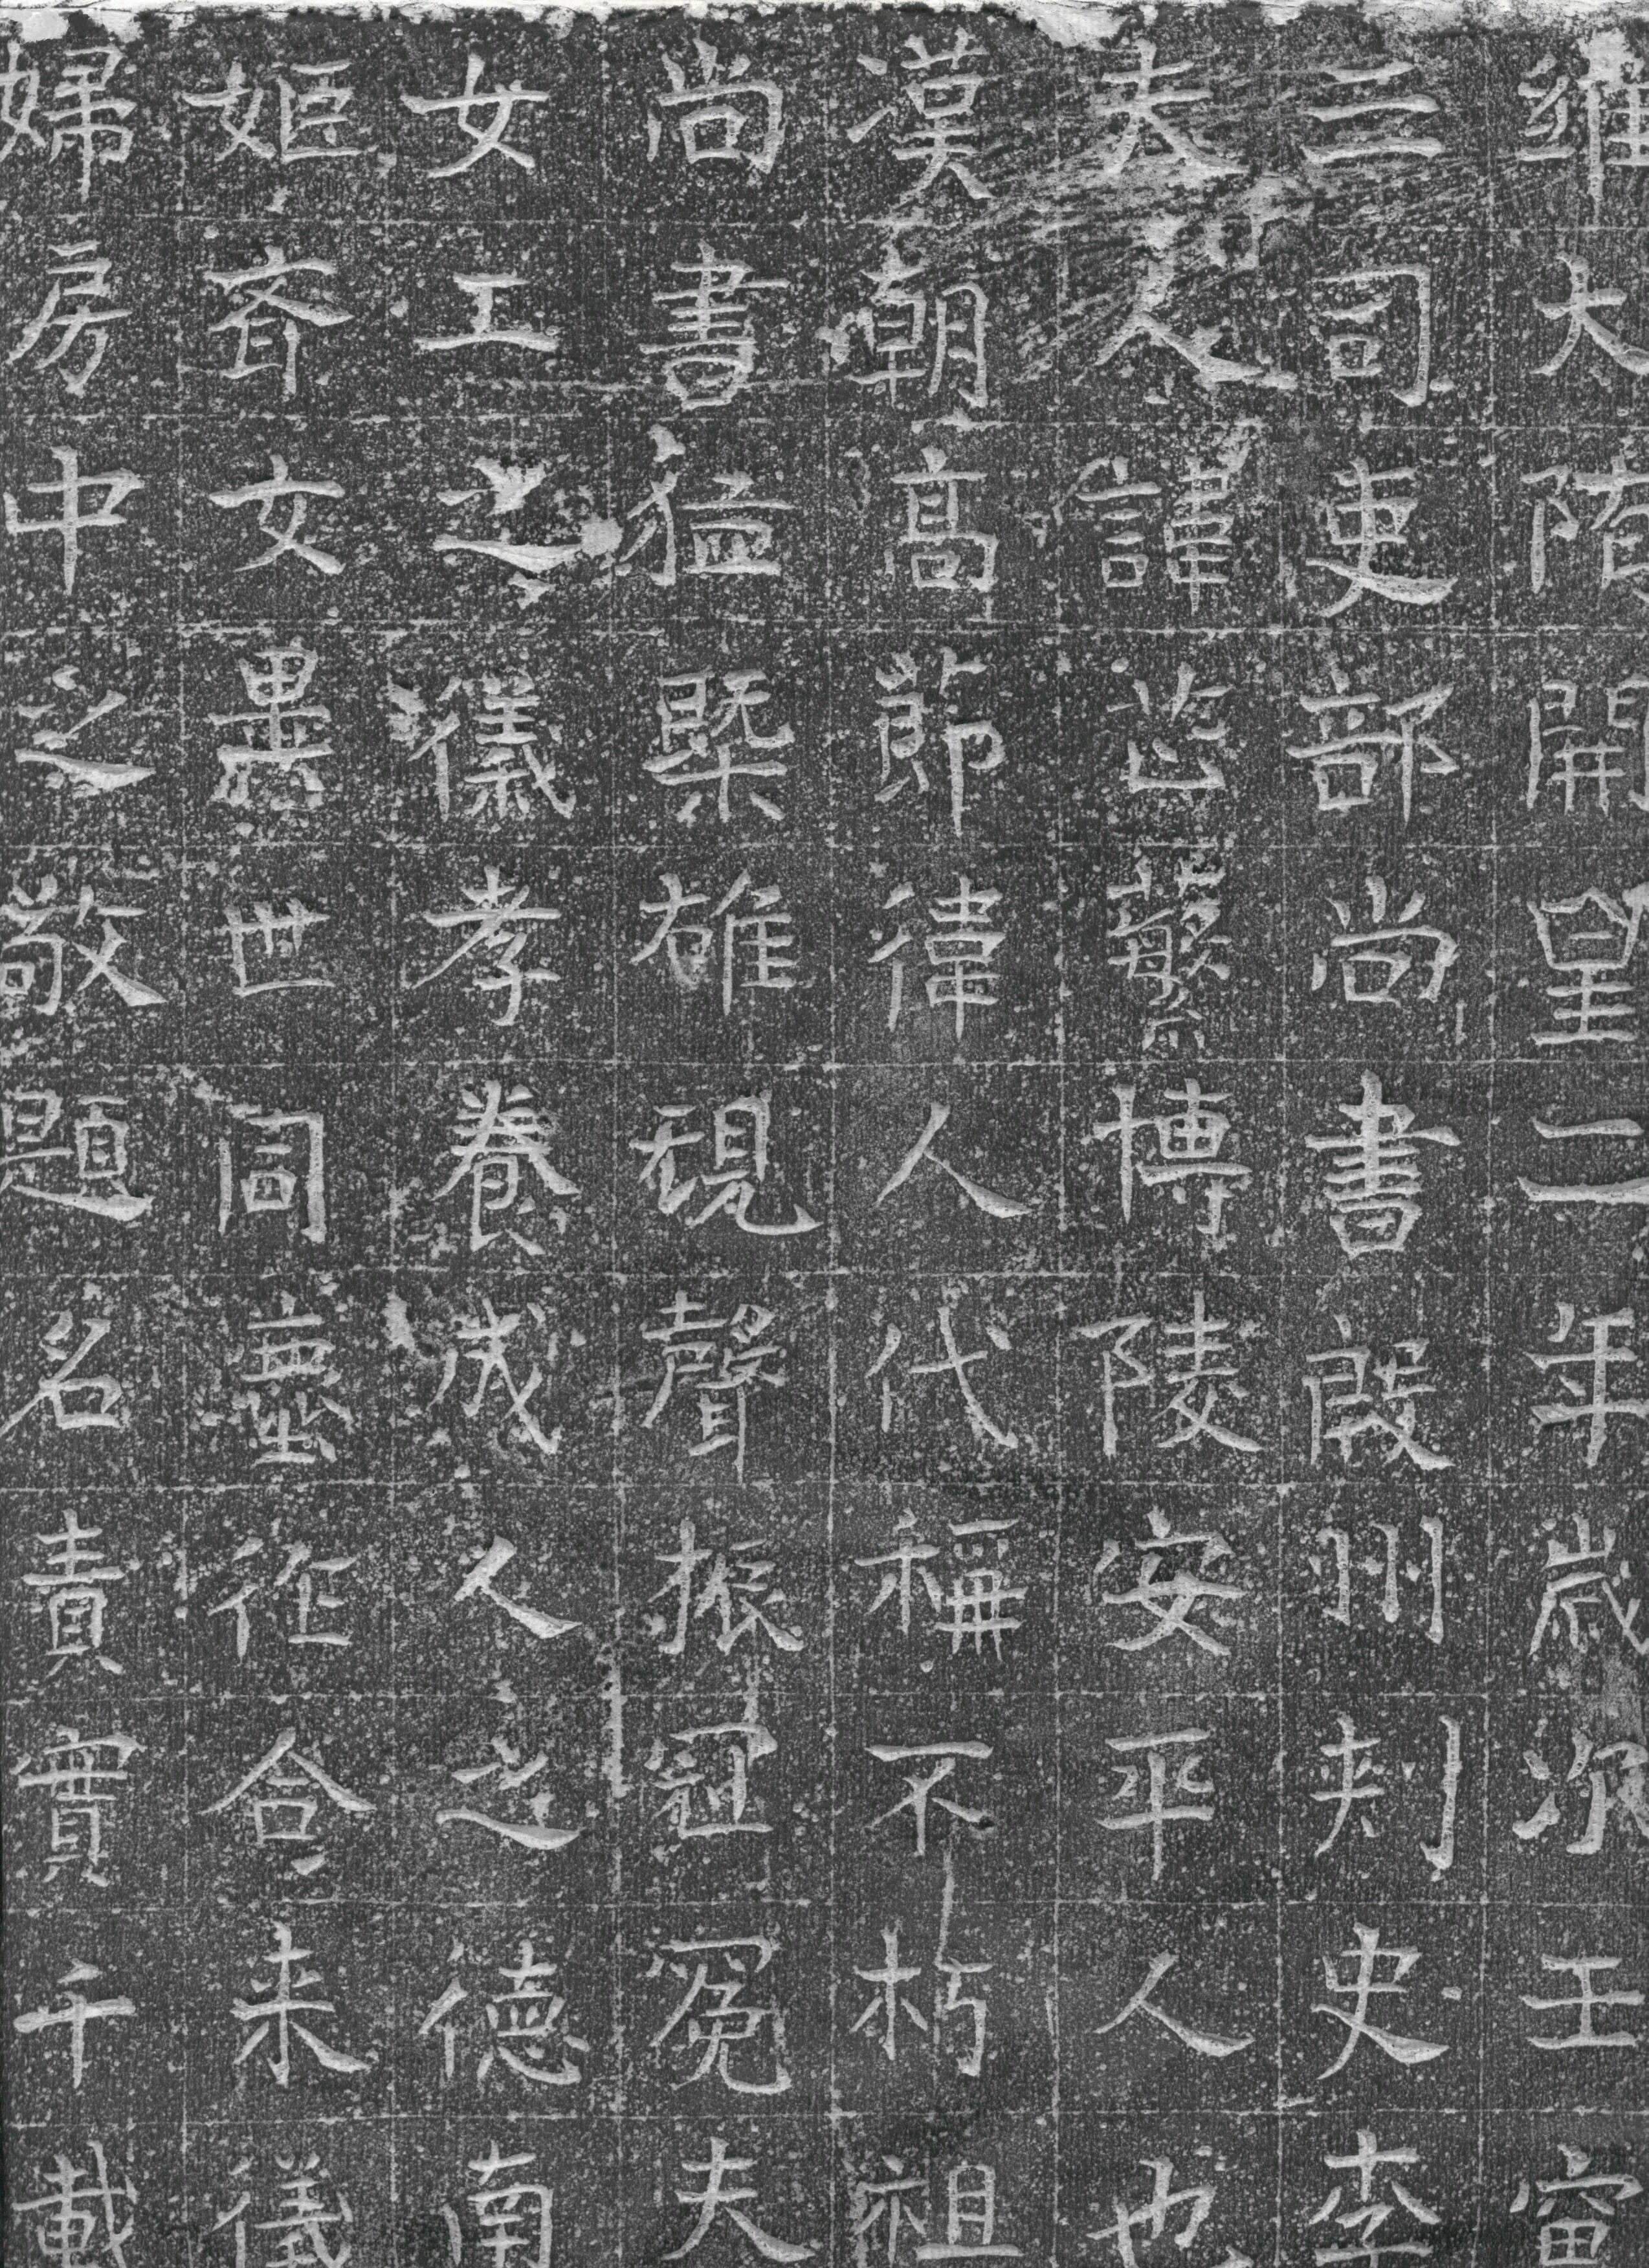 維大隋開皇二年歲次壬寅
三司吏部尚書殷州刾史李
夫人諱芷蘩博陵安平人也
漢朝高莭律人代稱不朽祖
尚書猛槩雄視聲振冠冕夫
女工之儀孝養成人之德南
姬齊女累世同塵作合来儀
婦房中之敬題名責實千載